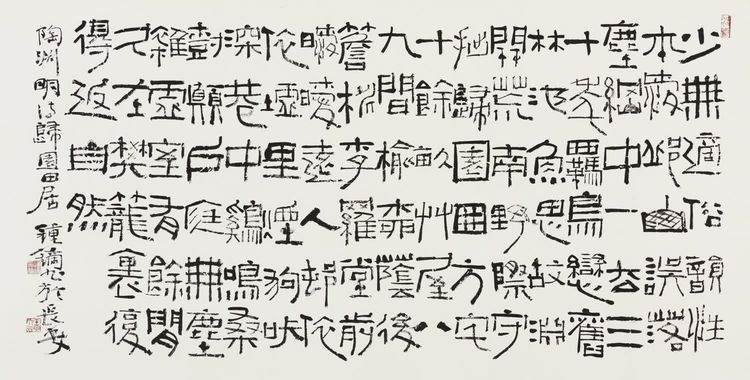 少無適俗韻性
本愛丘山誤落
塵網中一去三
十年羈鳥戀舊
林池魚思故淵
開荒南野際守
拙歸園田方宅
十餘畝艸屋八
九間榆柳蔭後
簷桃李羅堂前
曖曖遠人村依
依墟里煙狗吠
深巷中雞鳴桑
樹顛戶庭無塵
雜虛室有餘閒
久在樊籠裏復
得返自然
陶淵明诗歸園田居 鐘 於長安